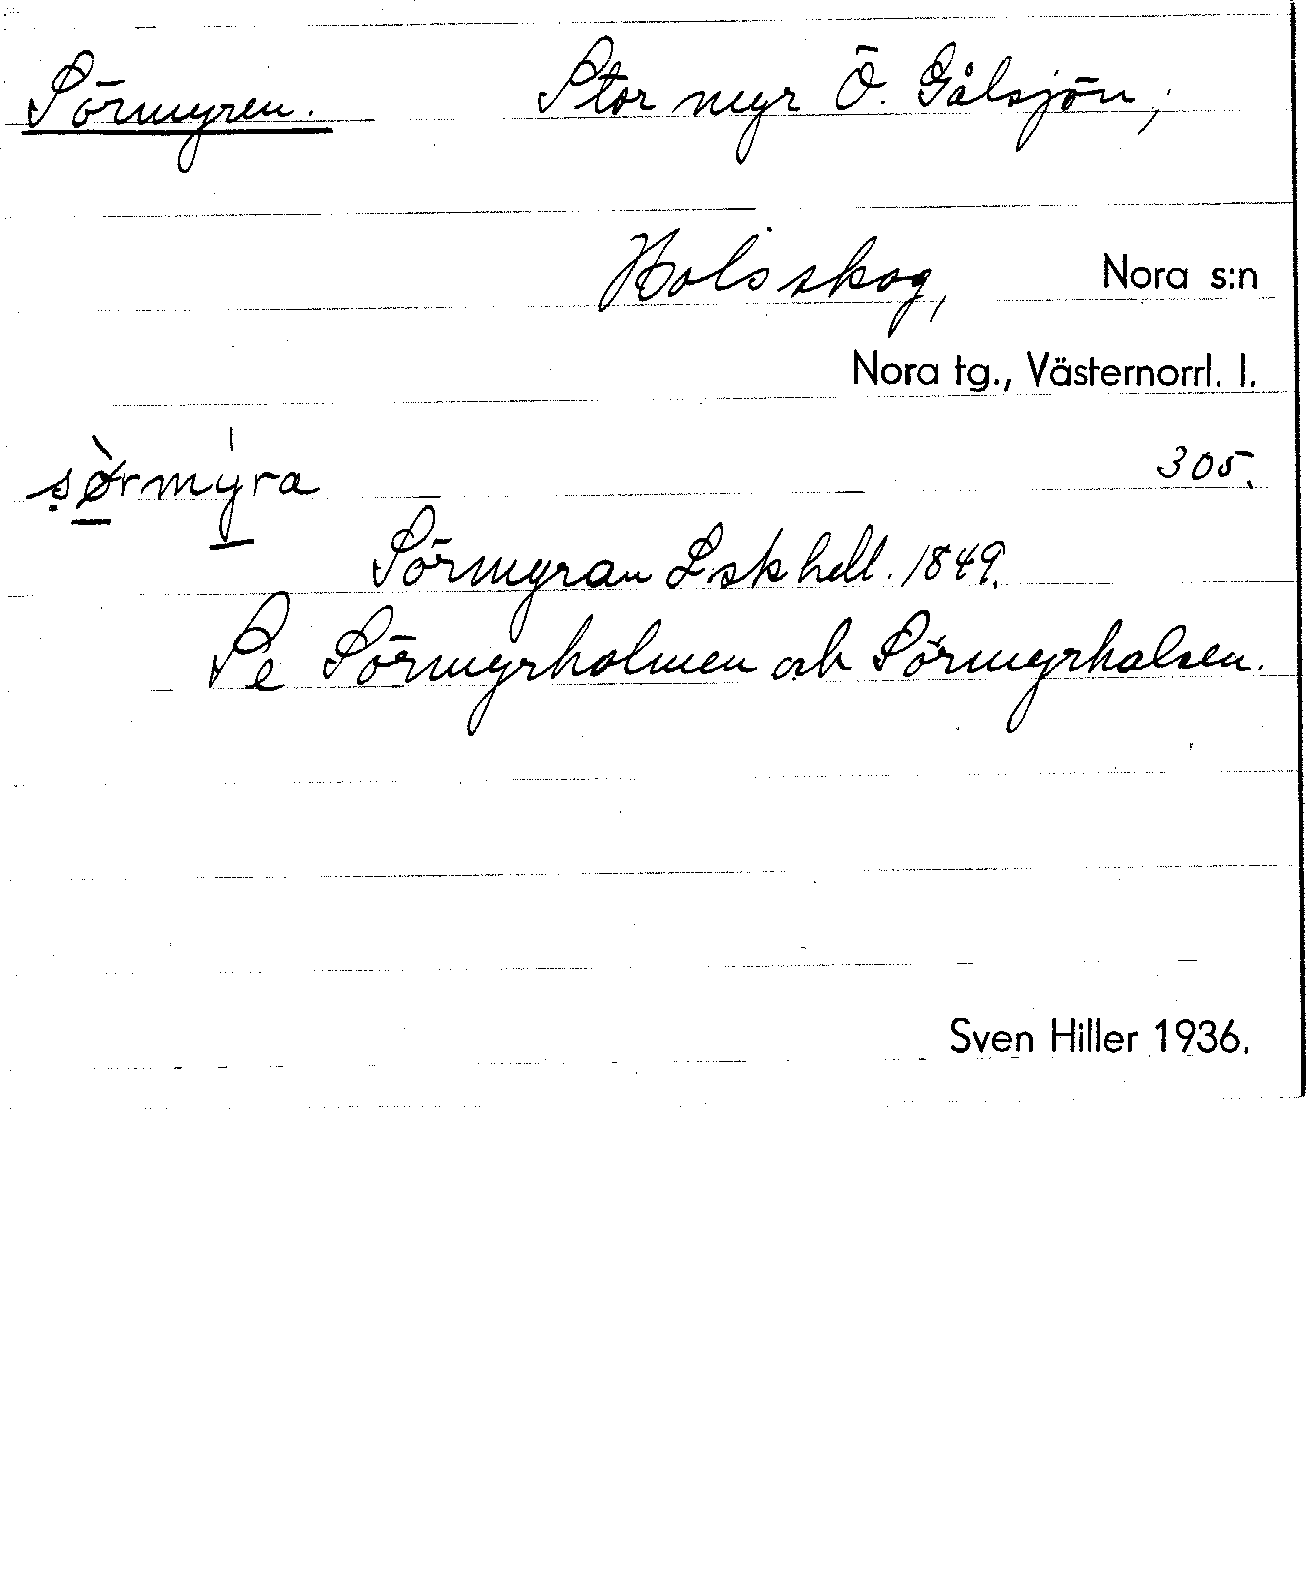 Sörmyren. Stor myr Ö. Gålsjön,
Holsskog, Nora s:n
Nora tg., Västernorrl. l.
sø̀rmýra 305.
Sörmyran Lskhdl. 1849.
Se Sörmyrholmen och Sörmyrhalsen.
Sven Hiller 1936.